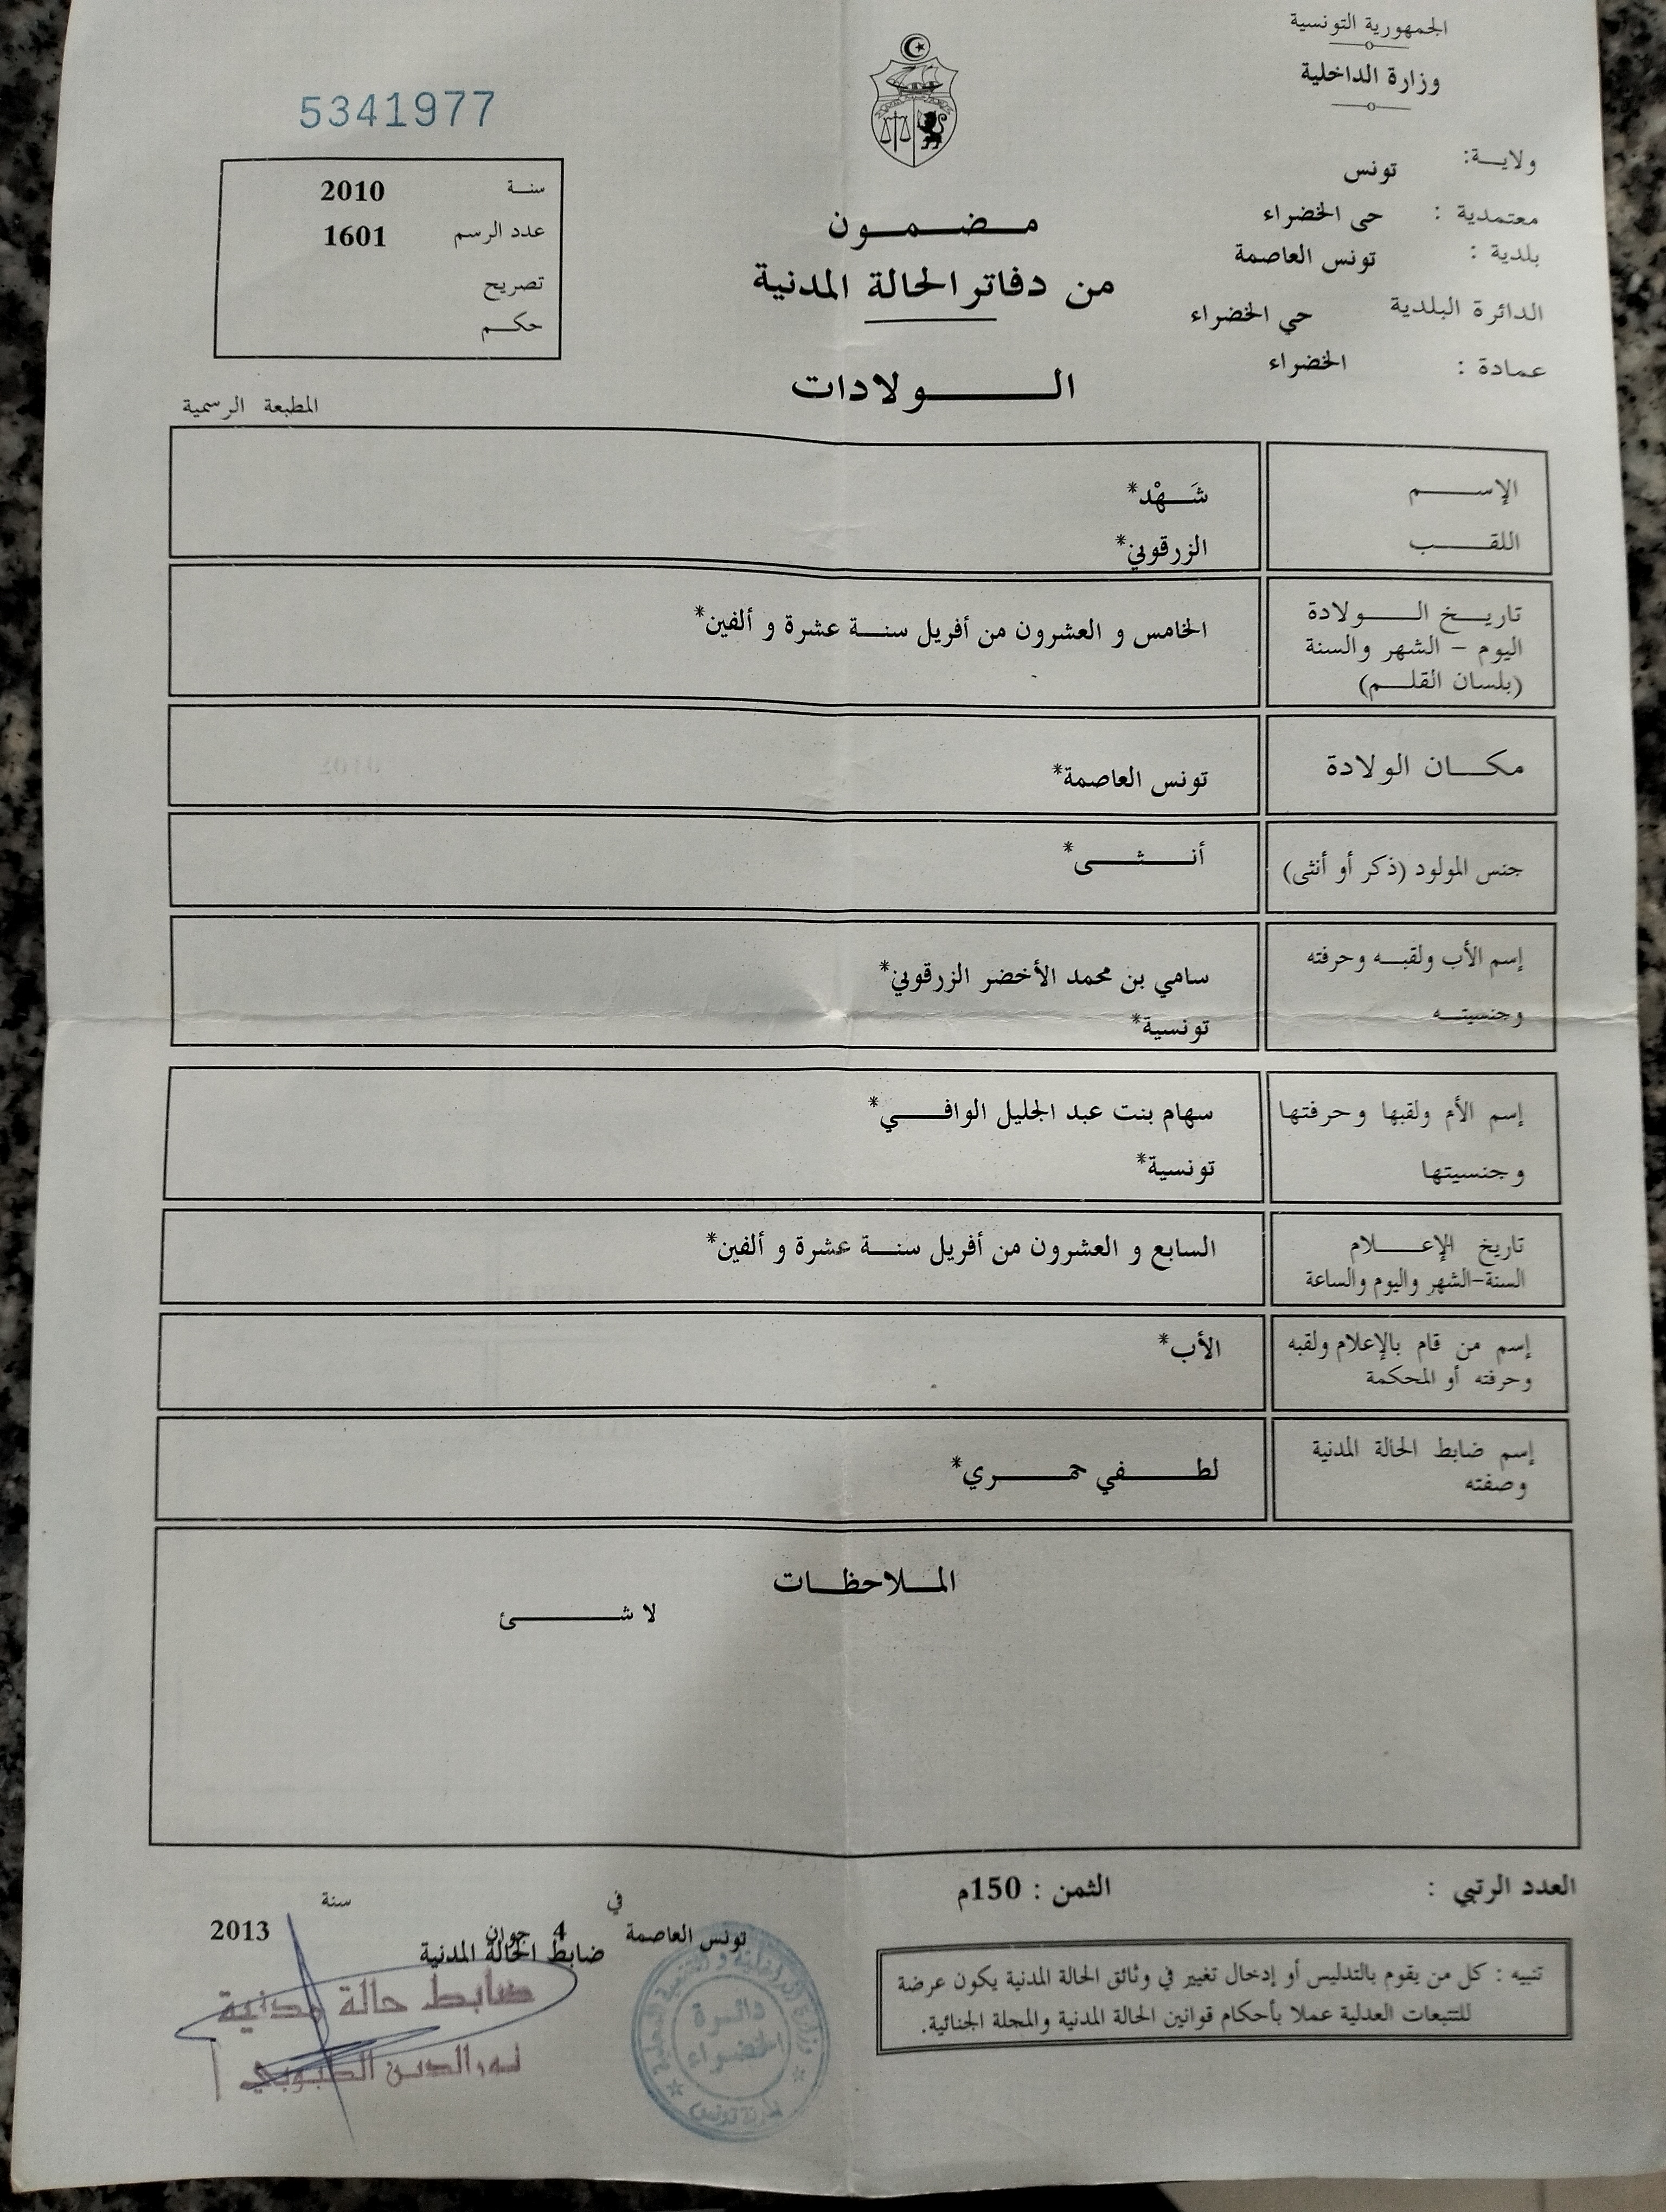 الجمهورية التونسية
وزارة الداخلية
ولاية: تونس
معتمدية : حى الخضراء
بلدية : تونس العاصمة
الدائرة البلدية حي الخضراء
عمادة : الخضراء
5341977
سنة 2010
عدد الرسم 1601
تصريح
حكم
المطبعة الرسمية
مضمون
من دفاتر الحالة المدنية
الولادات
الإسم شَهْد*
اللقب الزرقوني*
تاريخ الولادة
اليوم - الشهر والسنة
(بلسان القلم)
الخامس و العشرون من أفريل سنة عشرة و ألفين*
مكان الولادة
تونس العاصمة*
جنس المولود (ذكر أو أنثى)
أنثى*
إسم الأب ولقبه وحرفته
وجنسيته
سامي بن محمد الأخضر الزرقوني*
تونسية*
إسم الأم ولقبها وحرفتها
وجنسيتها
سهام بنت عبد الجليل الوافي*
تونسية*
تاريخ الإعلام
السنة-الشهر واليوم والساعة
السابع و العشرون من أفريل سنة عشرة و ألفين*
إسم من قام بالإعلام ولقبه
وحرفته أو المحكمة
الأب*
إسم ضابط الحالة المدنية
وصفته
لطفي حمري*
الملاحظات
لا شئ
العدد الرتبي :
الثمن : 150م
في سنة
تونس العاصمة 4 جوان 2013
ضابط الحالة المدنية
ضابط حالة مدنية
دائرة
الخضراء
تنبيه : كل من يقوم بالتدليس أو إدخال تغيير في وثائق الحالة المدنية يكون عرضة
للتتبعات العدلية عملا بأحكام قوانين الحالة المدنية والمجلة الجنائية.